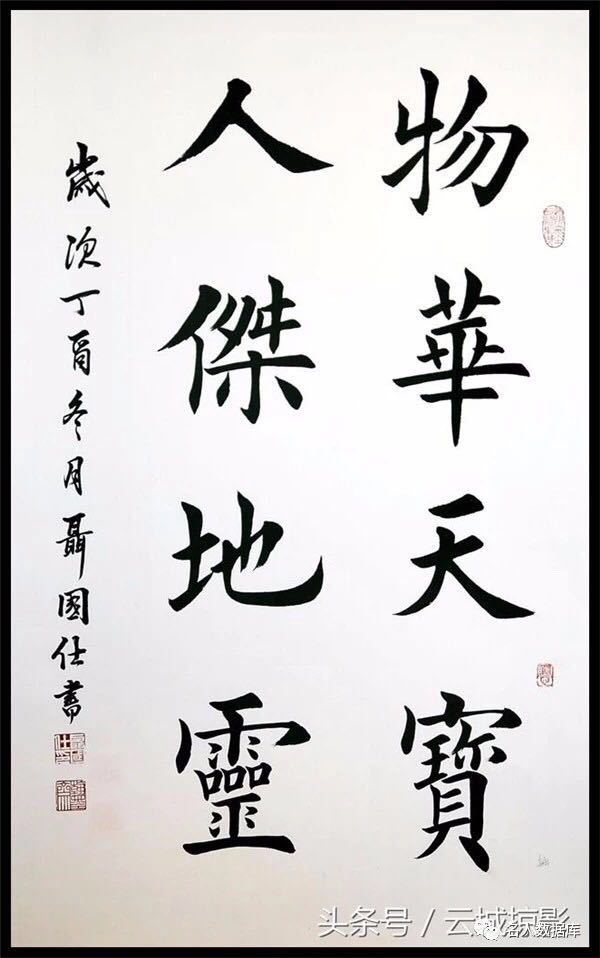 物華天寶
人傑地靈
歲次丁酉冬月聶國仕書
头条号／云城掠影
名人数据库